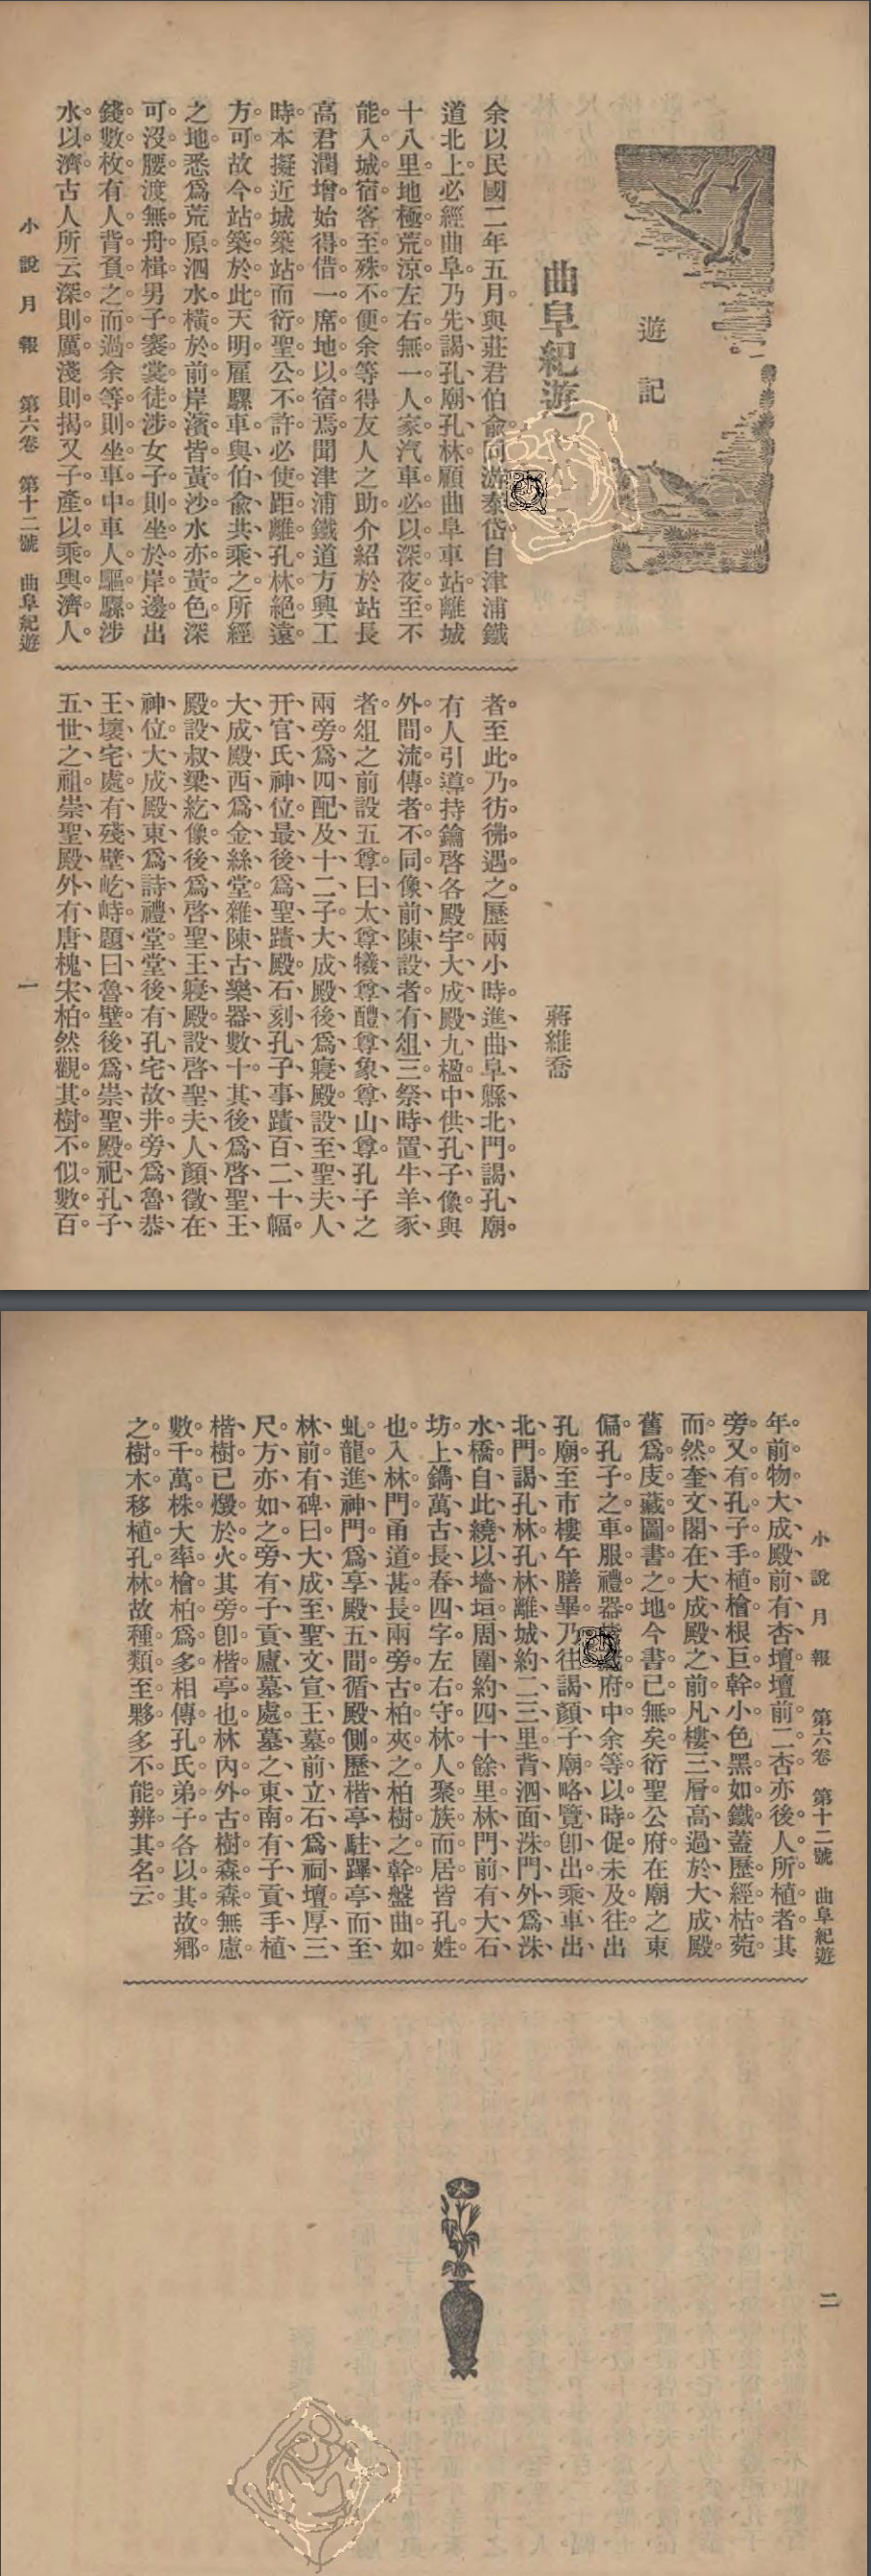 遊記
曲阜紀遊
蔣維喬
余以民國二年五月。與莊君伯俞同游泰岱。自津浦鐵
道北上。必經曲阜。乃先謁孔廟孔林。顧曲阜車站。離城
十八里。地極荒涼。左右無一人家。汽車必以深夜至。不
能入城。宿客至殊不便。余等得友人之助。介紹於站長
高君潤增。始得借一席地以宿焉。聞津浦鐵道方興工
時。本擬近城築站。而衍聖公不許。必使距離孔林絕遠。
方可。故今站築於此。天明。雇騾車。與伯俞共乘之。所經
之地。悉爲荒原。泗水橫於前。岸濱皆黃沙。水亦黃色。深
可沒腰。渡無舟楫。男子褰裳徒涉。女子則坐於岸邊。出
錢數枚。有人背負之而過。余等則坐車中。車人驅騾涉
水以濟。古人所云深則厲。淺則揭。又子產以乘輿濟人。
者。至此乃彷彿遇之。歷兩小時。進曲阜縣北門。謁孔廟。
有人引導。持鑰啓各殿宇。大成殿九楹。中供孔子像。與
外間流傳者不同。像前陳設者有俎三。祭時置牛羊豕
者。俎之前設五尊。曰太尊、犧尊、醴尊、象尊、山尊。孔子之
兩旁。爲四配及十二子。大成殿後爲寢殿。設至聖夫人
幵官氏神位。最後爲聖蹟殿。石刻孔子事蹟百二十幅。
大成殿西爲金絲堂。雜陳古樂器數十。其後爲啓聖王
殿。設叔梁紇像。後爲啓聖王寢殿。設啓聖夫人顏徵在
神位。大成殿東爲詩禮堂。堂後有孔宅故井。旁爲魯恭
王壞宅處。有殘壁屹峙。題曰魯壁。後爲崇聖殿。祀孔子
五世之祖。崇聖殿外有唐槐宋柏。然觀其樹。不似數百
小說月報 第六卷 第十二號 曲阜紀遊
一
小說月報 第六卷 第十二號 曲阜紀遊
二
年前物。大成殿前有杏壇。壇前二杏。亦後人所植者。其
旁又有孔子手植檜。根巨幹小。色黑如鐵。蓋歷經枯菀
而然。奎文閣在大成殿之前。凡樓三層。高過於大成殿。
舊爲庋藏圖書之地。今書已無矣。衍聖公府在廟之東
偏。孔子之車服禮器 府中。余等以時促未及往。出
孔廟。至市樓午膳畢。乃往謁顏子廟。略覽卽出。乘車出
北門。謁孔林。孔林離城約二三里。背泗面洙。門外爲洙
水橋。自此繞以墻垣。周圍約四十餘里。林門前有大石
坊。上鐫萬古長春四字。左右守林人聚族而居。皆孔姓
也。入林門。甬道甚長。兩旁古柏夾之。柏樹之幹。盤曲如
虬龍。進神門爲享殿五間。循殿側歷楷亭駐蹕亭而至
林。前有碑曰大成至聖文宣王墓。前立石爲祠壇。厚三
尺。方亦如之。旁有子貢廬墓處。墓之東南有子貢手植
楷樹。已燬於火。其旁卽楷亭也。林內外古樹森森。無慮
數千萬株。大率檜柏爲多。相傳孔氏弟子。各以其故鄉
之樹木移植孔林。故種類至夥。多不能辨其名云。